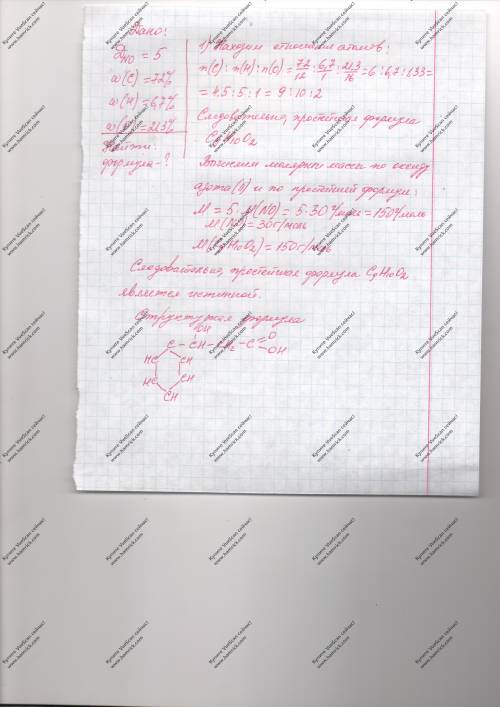 Дано:
D NO = 5
w(C) = 72%
w(H) = 6,7%
= 21,3%
Найти:
формула - ?
1) Находим отношения атомов:
n(C) : n(H) : n(O) = 72/12 : 6,7/1 : 21,3/16 = 6 : 6,7 : 1,33 =
= 4,5 : 5 : 1 = 9 : 10 : 2
Следовательно, простейшая формула
C9H10O2
молярн массы по оксиду
азота (II) и по простейшей формуле:
M = 5 · M(NO) = 5 · 30 г/моль = 150 г/моль
M(NO) = 30 г/моль
M(C9H10O2) = 150 г/моль
Следовательно, простейшая формула C9H10O2
является истинной.
Структурная формула
OH
C - CH - CH2 - C O
OH
HC CH
HC CH
CH
Купите VueScan сейчас!
www.hamrick.com